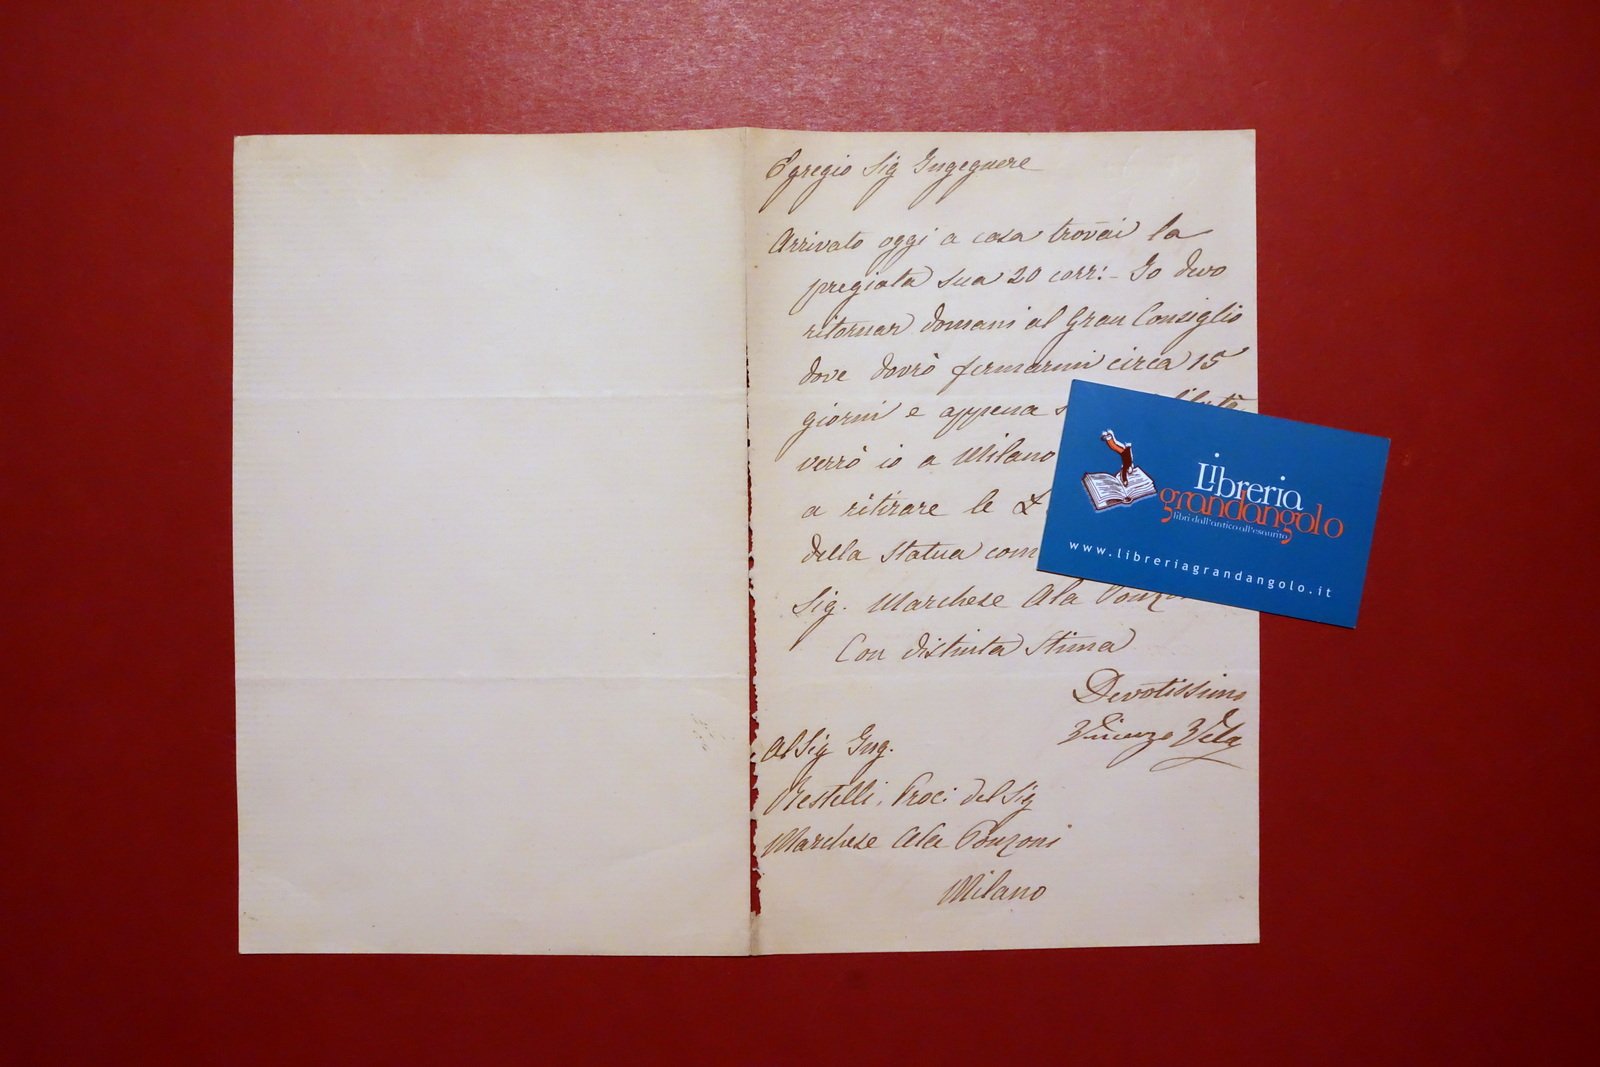 Egregio Sig Ingegnere
Arrivato oggi a casa trovai la
pregiata sua 20 corr: - Io devo
ritornar domani al Gran Consiglio
dove dovrò fermarmi circa 15
giorni e appena
verrò io a Milano
a ritirare le
della Statua com
Sig. Marchese Ala Ponzo
Con distinta Stima
Devotissimo
Vincenzo Vela
Al Sig Ing.
Restelli. Proc: del Sig
Marchese Ala Ponzoni
Milano
Libreria
grandangolo
libri dall'antico all'esaurito
www.libreriagrandangolo.it